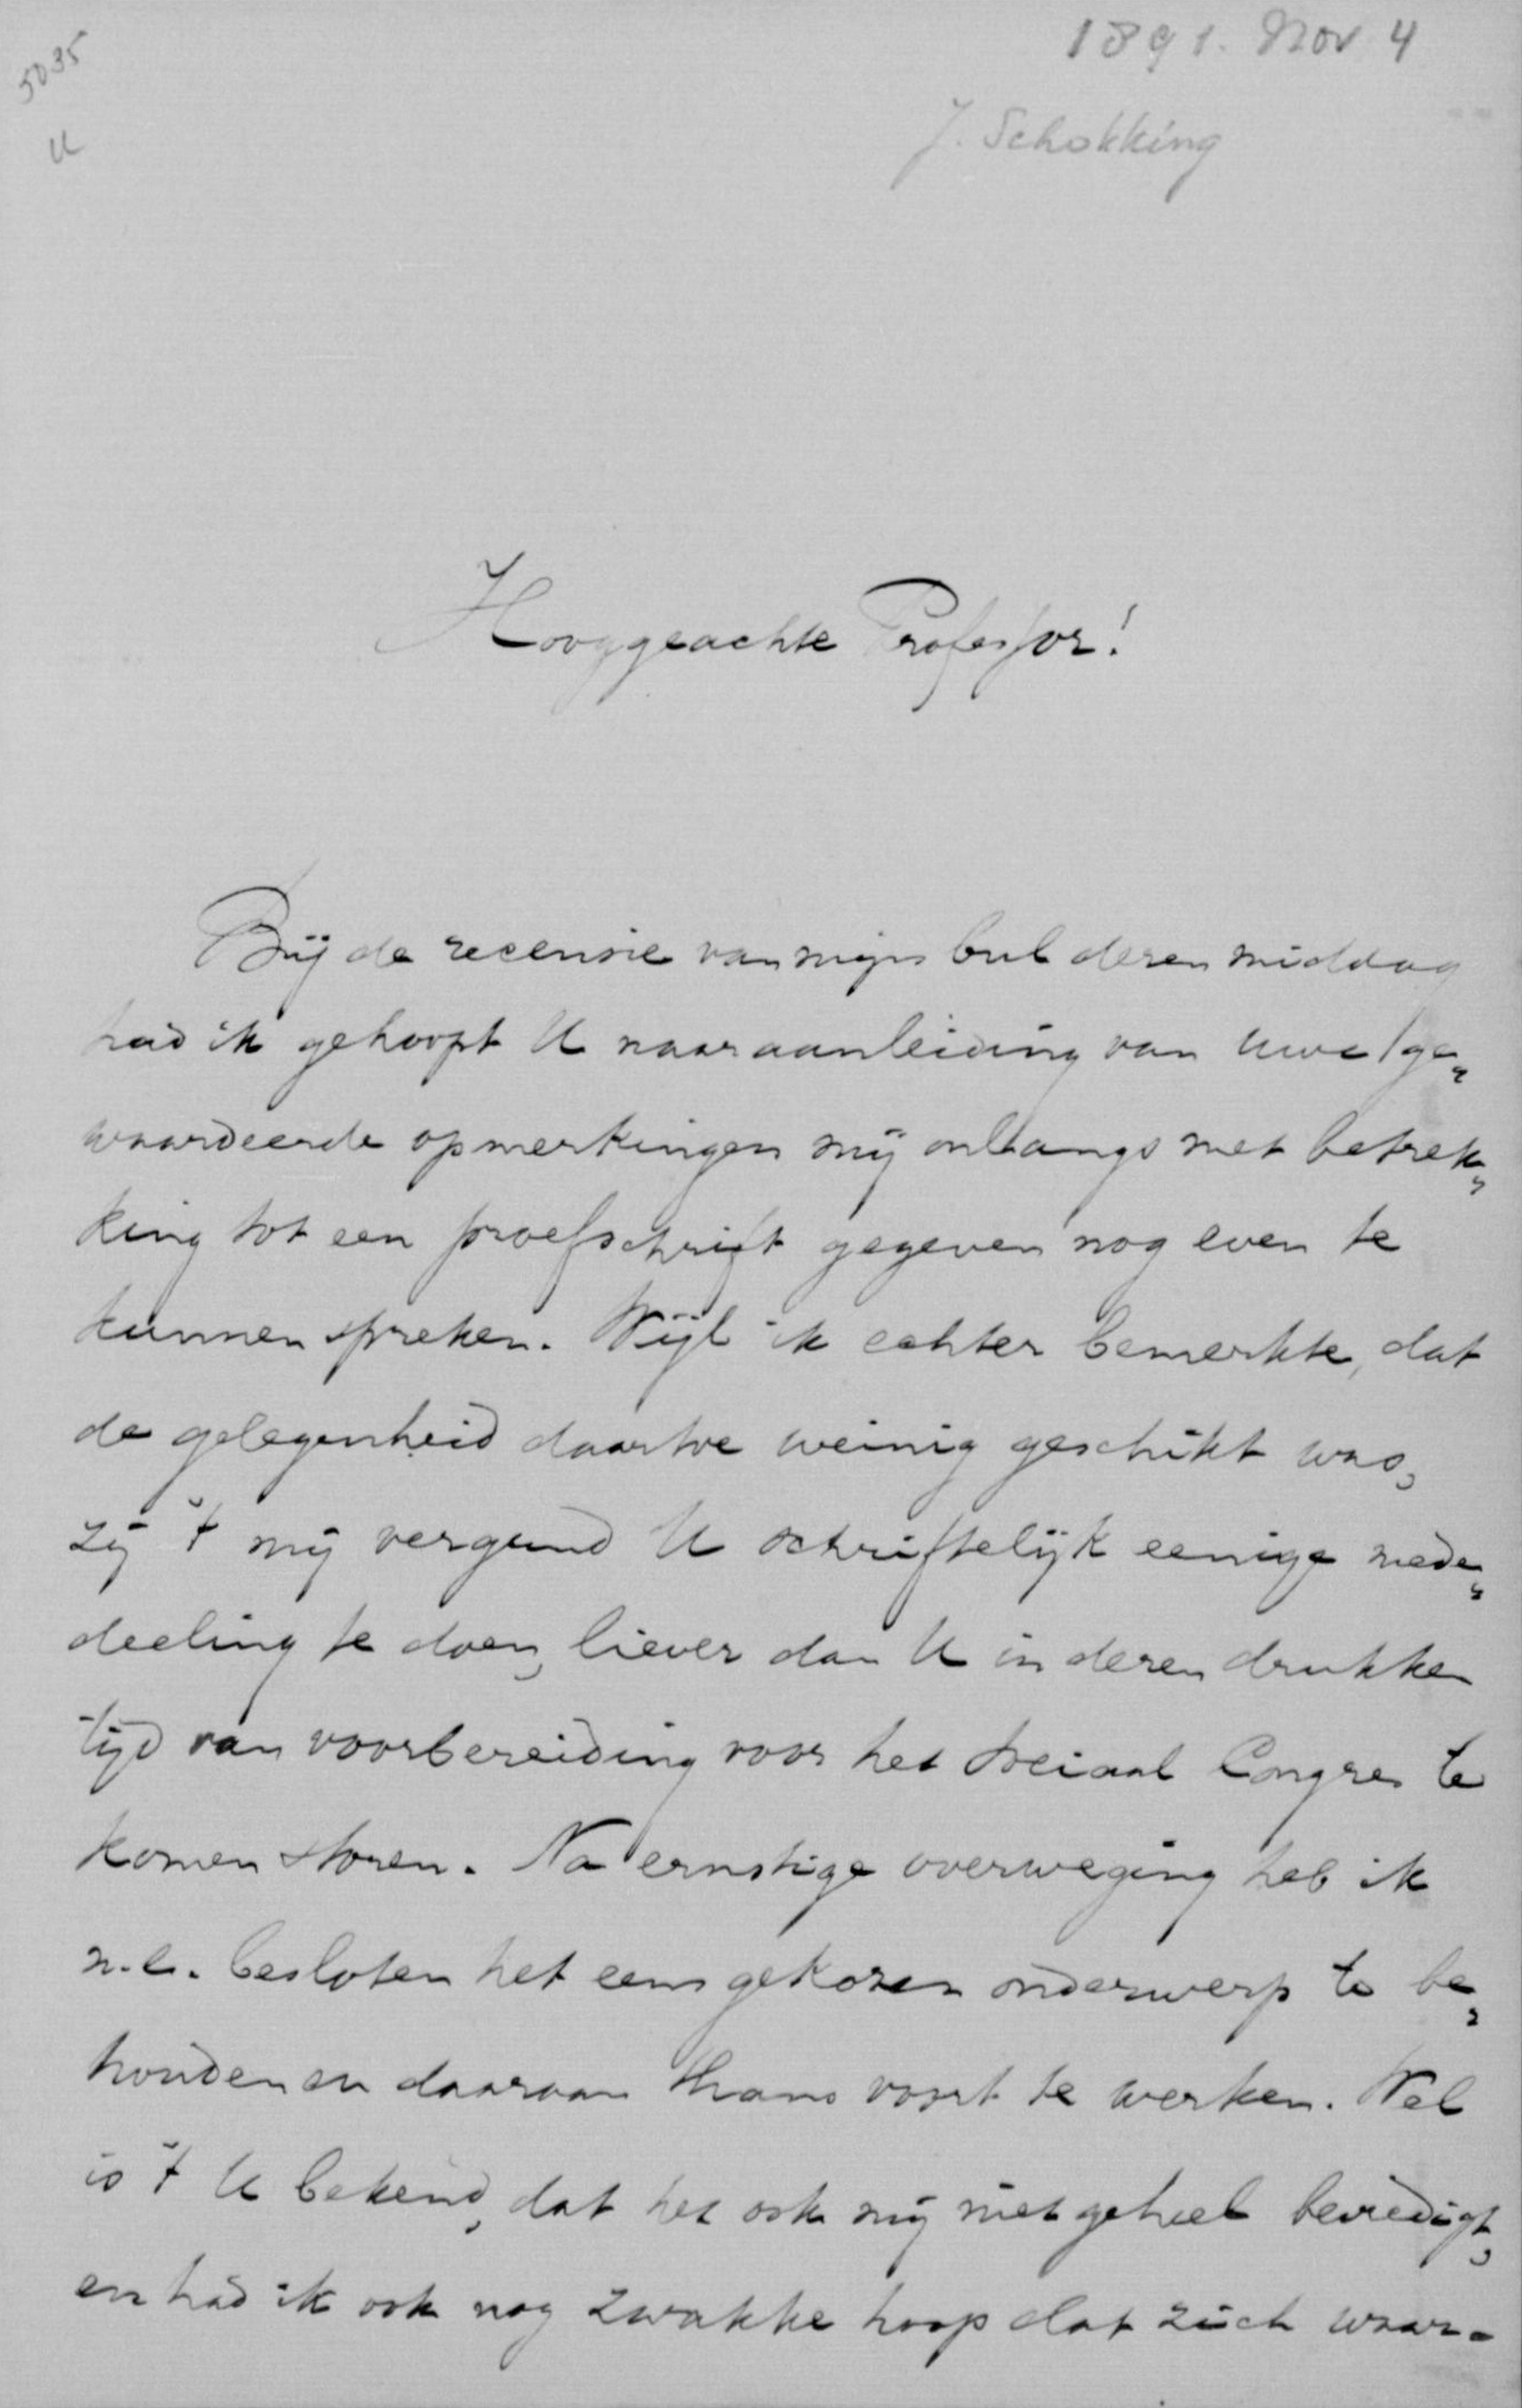 5035
U
1891. Nov 4
J. Schokking
Hooggeachte Professor!
Bij de recensie van mijn bul dezen middag
had ik gehoopt U naar aanleiding van Uwe ge„
waardeerde opmerkingen mij onlangs met betrek„
king tot een proefschrift gegeven nog even te
kunnen spreken. Wijl ik echter bemerkte, dat
de gelegenheid daartoe weinig geschikt was,
zij 't mij vergund U schriftelijk eenige mede„
deeling te doen, liever dan U in dezen drukken
tijd van voorbereiding voor het Sociaal Congres te
komen storen. Na ernstige overweging heb ik
n.l. besloten het eens gekozen onderwerp te be„
houden en daaraan thans voort te werken. Wel
is 't U bekend, dat het ook mij niet geheel bevredigt,
en had ik ook nog zwakke hoop dat zich waar-